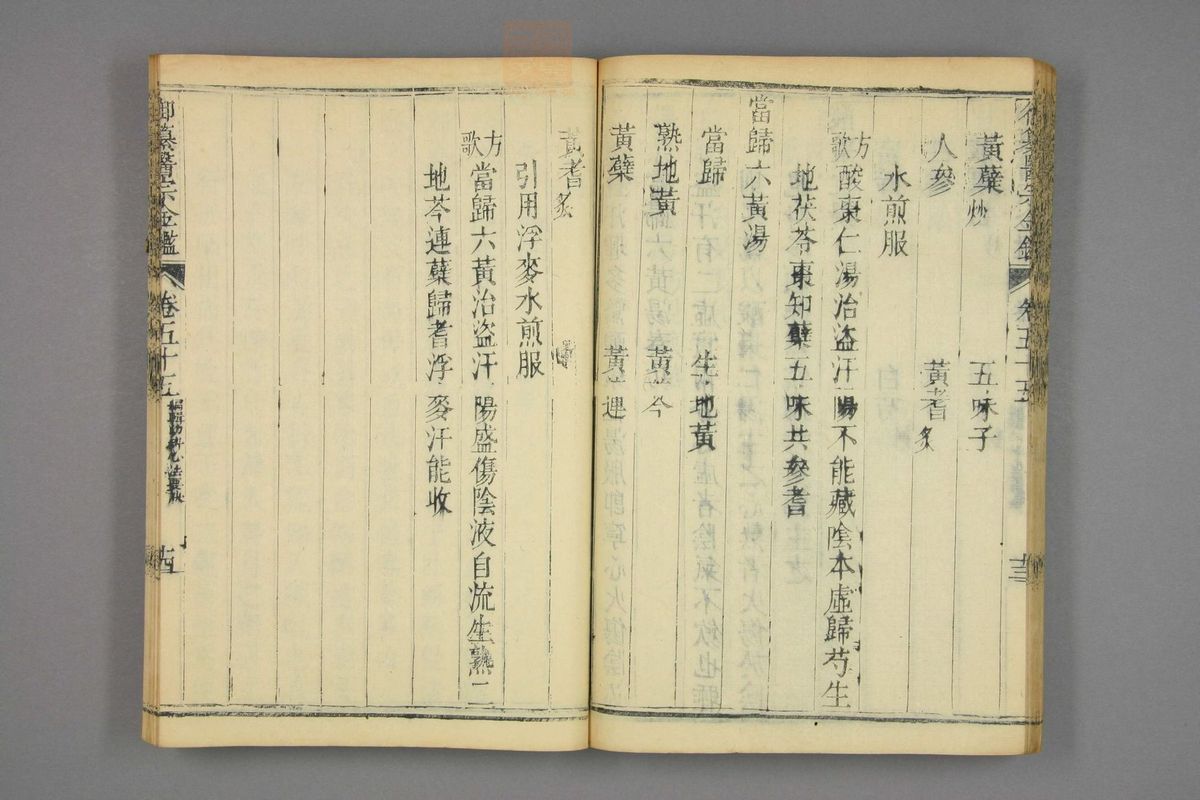 黃蘗炒　五味子
人參　黃耆炙
水煎服
方歌　酸棗仁湯治盜汗陽不能藏陰本虛歸芍生
地茯苓棗知蘗五味共參耆
當歸六黃湯
當歸　生地黃
熟地黃　黃芩
黃蘗　黃連
黃耆炙
引用浮麥水煎服
方歌　當歸六黃治盜汗陽盛傷陰液自流生熟二
地芩連蘗歸耆浮麥汗能收
御纂醫宗金鑑　卷五十五　編輯幼科心法要訣　十四